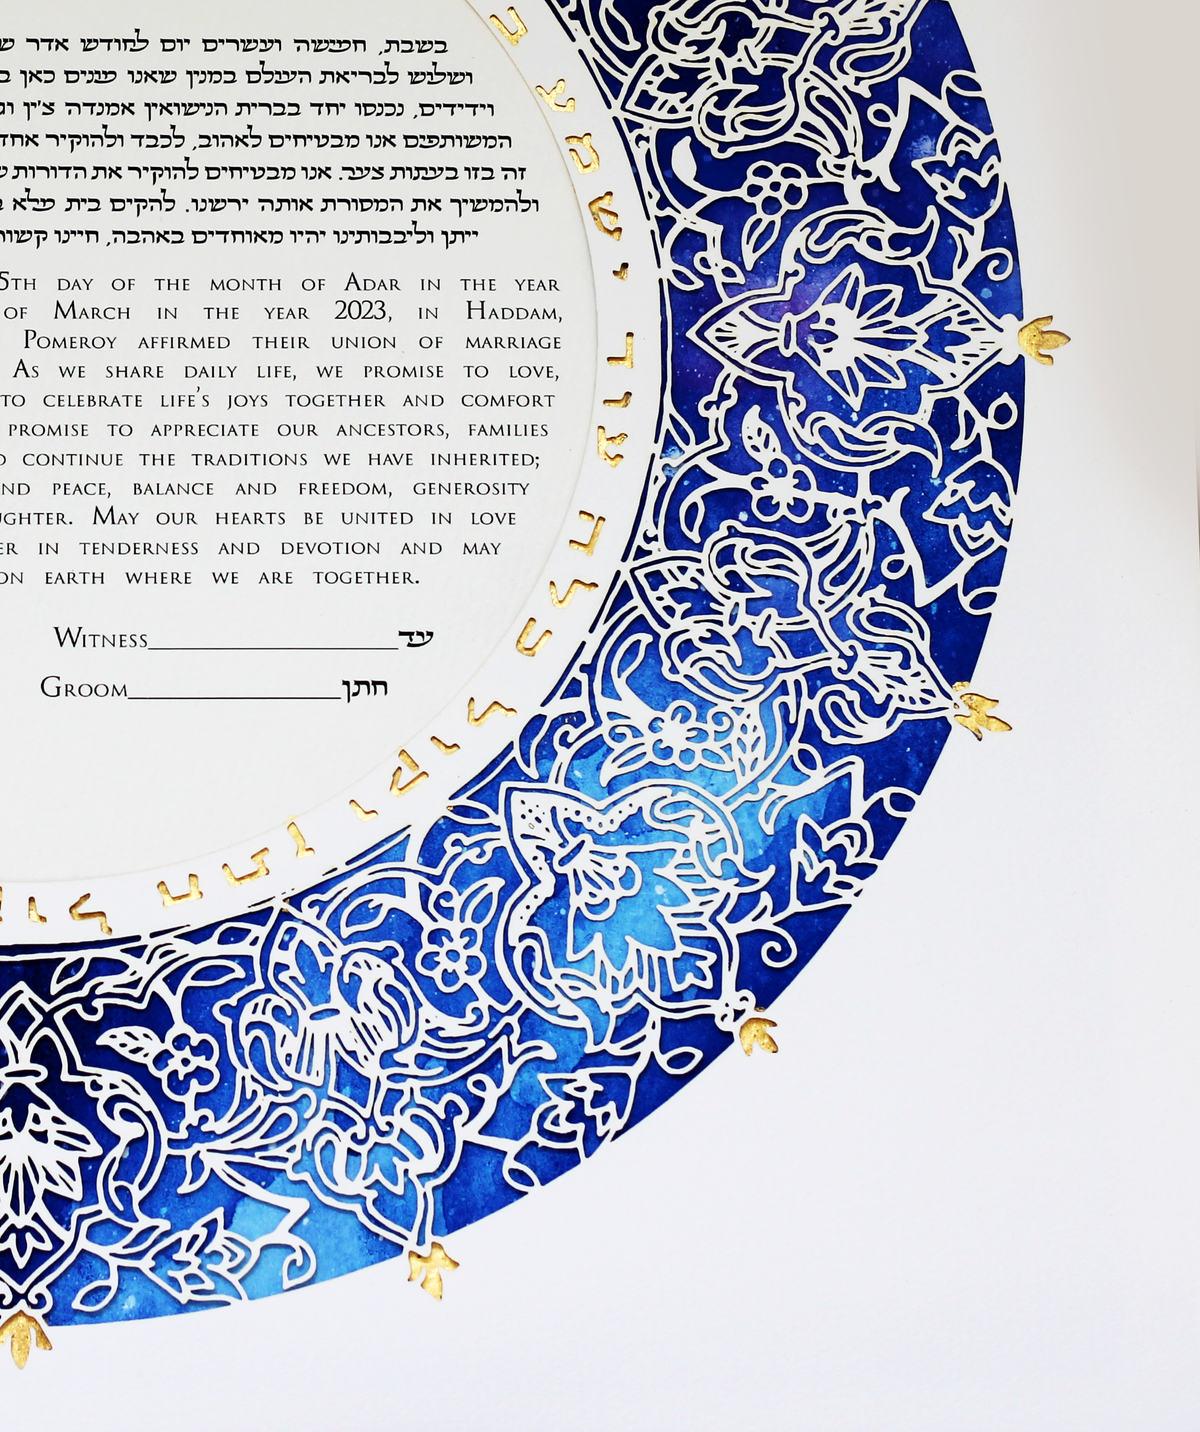 בשבת, חמישה ועשרים יום לחודש אדר
ושלוש לבריאת העולם במנין שאנו מונים כאן
וידידים, נכנסו יחד בברית הנישואין אמנדה צ'ין
המשותפים אנו מבטיחים לאהוב, לכבד ולהוקיר אחד
זה בזו בעתות צער. אנו מבטיחים להוקיר את הדורות
ולהמשיך את המסורת אותה ירשנו. להקים בית מלא
ייתן וליבבותינו יהיו מאוחדים באהבה, חיינו
5th day of the month of Adar in the year
of March in the year 2023, in Haddam,
Pomeroy affirmed their union of marriage
As we share daily life, we promise to love,
to celebrate life's joys together and comfort
promise to appreciate our ancestors, families
continue the traditions we have inherited;
nd peace, balance and freedom, generosity
ughter. May our hearts be united in love
er in tenderness and devotion and may
on earth where we are together.
Witness____________________עד
Groom_________________חתן
קול חתן וקול כלה עוד ישמע